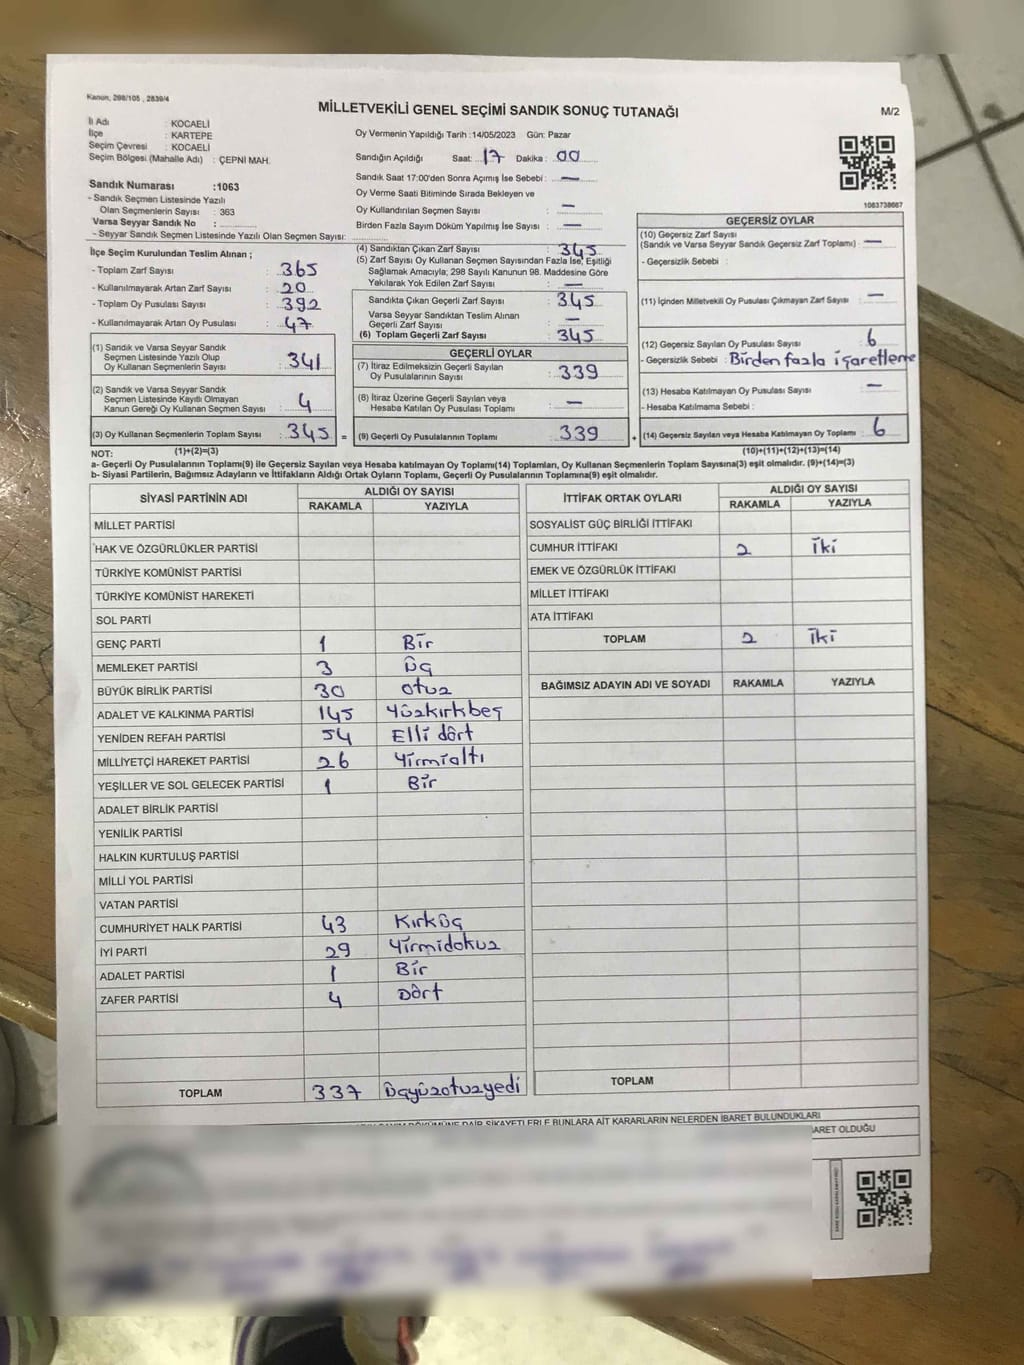 Kanun, 298/105 , 2839/4
MİLLETVEKİLİ GENEL SEÇİMİ SANDIK SONUÇ TUTANAĞI
M/2
İl Adı : KOCAELİ
İlçe : KARTEPE
Seçim Çevresi : KOCAELİ
Seçim Bölgesi (Mahalle Adı) : ÇEPNİ MAH.
Sandık Numarası :1063
- Sandık Seçmen Listesinde Yazılı
Olan Seçmenlerin Sayısı : 363
Varsa Seyyar Sandık No :
- Seyyar Sandık Seçmen Listesinde Yazılı Olan Seçmen Sayısı:
Oy Vermenin Yapıldığı Tarih :14/05/2023 Gün: Pazar
Sandığın Açıldığı Saat: 17 Dakika : 00
Sandık Saat 17:00'den Sonra Açımış İse Sebebi : —
Oy Verme Saati Bitiminde Sırada Bekleyen ve
Oy Kullandırılan Seçmen Sayısı : —
Birden Fazla Sayım Döküm Yapılmış İse Sayısı : —
1063738687
İlçe Seçim Kurulundan Teslim Alınan ;
- Toplam Zarf Sayısı : 365
- Kullanılmayarak Artan Zarf Sayısı : 20
- Toplam Oy Pusulası Sayısı : 392
- Kullanılmayarak Artan Oy Pusulası : 47
(1) Sandık ve Varsa Seyyar Sandık
Seçmen Listesinde Yazılı Olup
Oy Kullanan Seçmenlerin Sayısı : 341
(2) Sandık ve Varsa Seyyar Sandık
Seçmen Listesinde Kayıtlı Olmayan
Kanun Gereği Oy Kullanan Seçmen Sayısı : 4
(3) Oy Kullanan Seçmenlerin Toplam Sayısı : 345 =
(4) Sandıktan Çıkan Zarf Sayısı : 345
(5) Zarf Sayısı Oy Kullanan Seçmen Sayısından Fazla İse, Eşitliği
Sağlamak Amacıyla; 298 Sayılı Kanunun 98. Maddesine Göre
Yakılarak Yok Edilen Zarf Sayısı : —
Sandıkta Çıkan Geçerli Zarf Sayısı : 345
Varsa Seyyar Sandıktan Teslim Alınan
Geçerli Zarf Sayısı : —
(6) Toplam Geçerli Zarf Sayısı : 345
GEÇERLİ OYLAR
(7) İtiraz Edilmeksizin Geçerli Sayılan
Oy Pusulalarının Sayısı : 339
(8) İtiraz Üzerine Geçerli Sayılan veya
Hesaba Katılan Oy Pusulası Toplamı : —
(9) Geçerli Oy Pusulalarının Toplamı : 339 +
GEÇERSİZ OYLAR
(10) Geçersiz Zarf Sayısı
(Sandık ve Varsa Seyyar Sandık Geçersiz Zarf Toplamı) : —
- Geçersizlik Sebebi :
(11) İçinden Milletvekili Oy Pusulası Çıkmayan Zarf Sayısı : —
(12) Geçersiz Sayılan Oy Pusulası Sayısı : 6
- Geçersizlik Sebebi : Birden fazla işaretleme
(13) Hesaba Katılmayan Oy Pusulası Sayısı : —
- Hesaba Katılmama Sebebi :
(14) Geçersiz Sayılan veya Hesaba Katılmayan Oy Toplamı : 6
NOT: (1)+(2)=(3) (10)+(11)+(12)+(13)=(14)
a- Geçerli Oy Pusulalarının Toplamı(9) ile Geçersiz Sayılan veya Hesaba katılmayan Oy Toplamı(14) Toplamları, Oy Kullanan Seçmenlerin Toplam Sayısına(3) eşit olmalıdır. (9)+(14)=(3)
b- Siyasi Partilerin, Bağımsız Adayların ve İttifakların Aldığı Ortak Oyların Toplamı, Geçerli Oy Pusulalarının Toplamına(9) eşit olmalıdır.
SİYASİ PARTİNİN ADI ALDIĞI OY SAYISI
RAKAMLA YAZIYLA
MİLLET PARTİSİ
HAK VE ÖZGÜRLÜKLER PARTİSİ
TÜRKİYE KOMÜNİST PARTİSİ
TÜRKİYE KOMÜNİST HAREKETİ
SOL PARTİ
GENÇ PARTİ 1 Bir
MEMLEKET PARTİSİ 3 üç
BÜYÜK BİRLİK PARTİSİ 30 otuz
ADALET VE KALKINMA PARTİSİ 145 Yüzkırkbeş
YENİDEN REFAH PARTİSİ 54 Elli dört
MİLLİYETÇİ HAREKET PARTİSİ 26 Yirmialtı
YEŞİLLER VE SOL GELECEK PARTİSİ 1 Bir
ADALET BİRLİK PARTİSİ
YENİLİK PARTİSİ
HALKIN KURTULUŞ PARTİSİ
MİLLİ YOL PARTİSİ
VATAN PARTİSİ
CUMHURİYET HALK PARTİSİ 43 Kırküç
İYİ PARTİ 29 Yirmidokuz
ADALET PARTİSİ 1 Bir
ZAFER PARTİSİ 4 Dört
TOPLAM 337 üçyüzotuzyedi
İTTİFAK ORTAK OYLARI ALDIĞI OY SAYISI
RAKAMLA YAZIYLA
SOSYALİST GÜÇ BİRLİĞİ İTTİFAKI
CUMHUR İTTİFAKI 2 İki
EMEK VE ÖZGÜRLÜK İTTİFAKI
MİLLET İTTİFAKI
ATA İTTİFAKI
TOPLAM 2 İki
BAĞIMSIZ ADAYIN ADI VE SOYADI RAKAMLA YAZIYLA
TOPLAM
DAİR ŞİKAYETLERLE BUNLARA AİT KARARLARIN NELERDEN İBARET BULUNDUKLARI
OLDUĞU